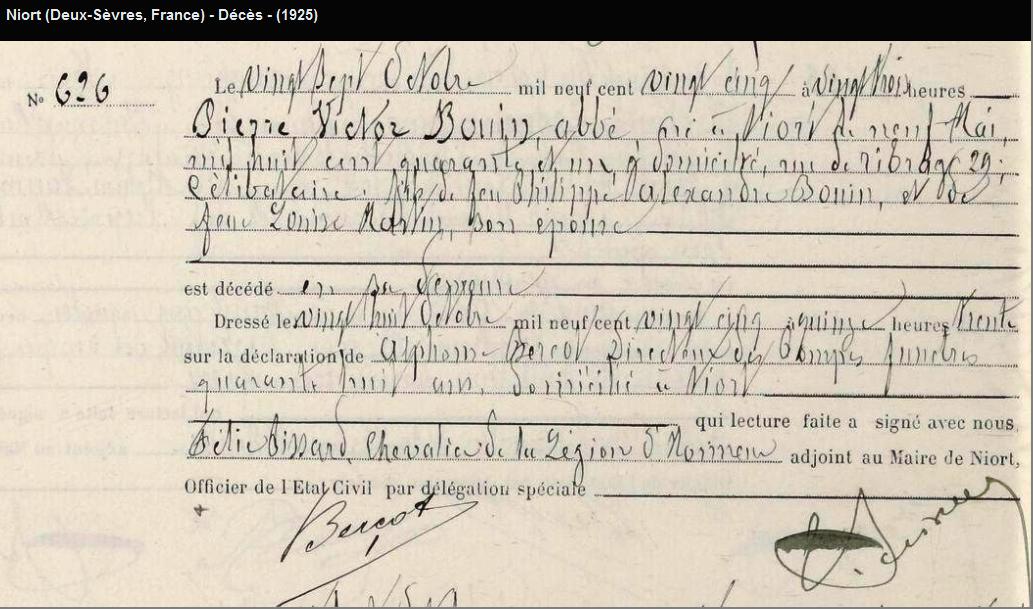 Niort (Deux-Sèvres, France) - Décès - (1925)
N° 626 Le vingt sept Octobre mil neuf cent vingt cinq à vingt trois heures
Pierre Victor Bouin, abbé né à Niort le neuf Mai
mil huit cent quarante et un, domicilié, rue de 29;
Célibataire fils de feu Philippe Alexandre Bouin, et de
feue Louise Martin, son épouse
est décédé en sa demeure
Dressé le vingt huit Octobre mil neuf cent vingt cinq à quinze heures trente
sur la déclaration de Alphonse Bercot Directeur des Pompes funèbres
quarante huit ans, domicilié à Niort
qui lecture faite a signé avec nous,
Chevalier de la Légion d'Honneur adjoint au Maire de Niort,
Officier de l'Etat Civil par délégation spéciale
Bercot